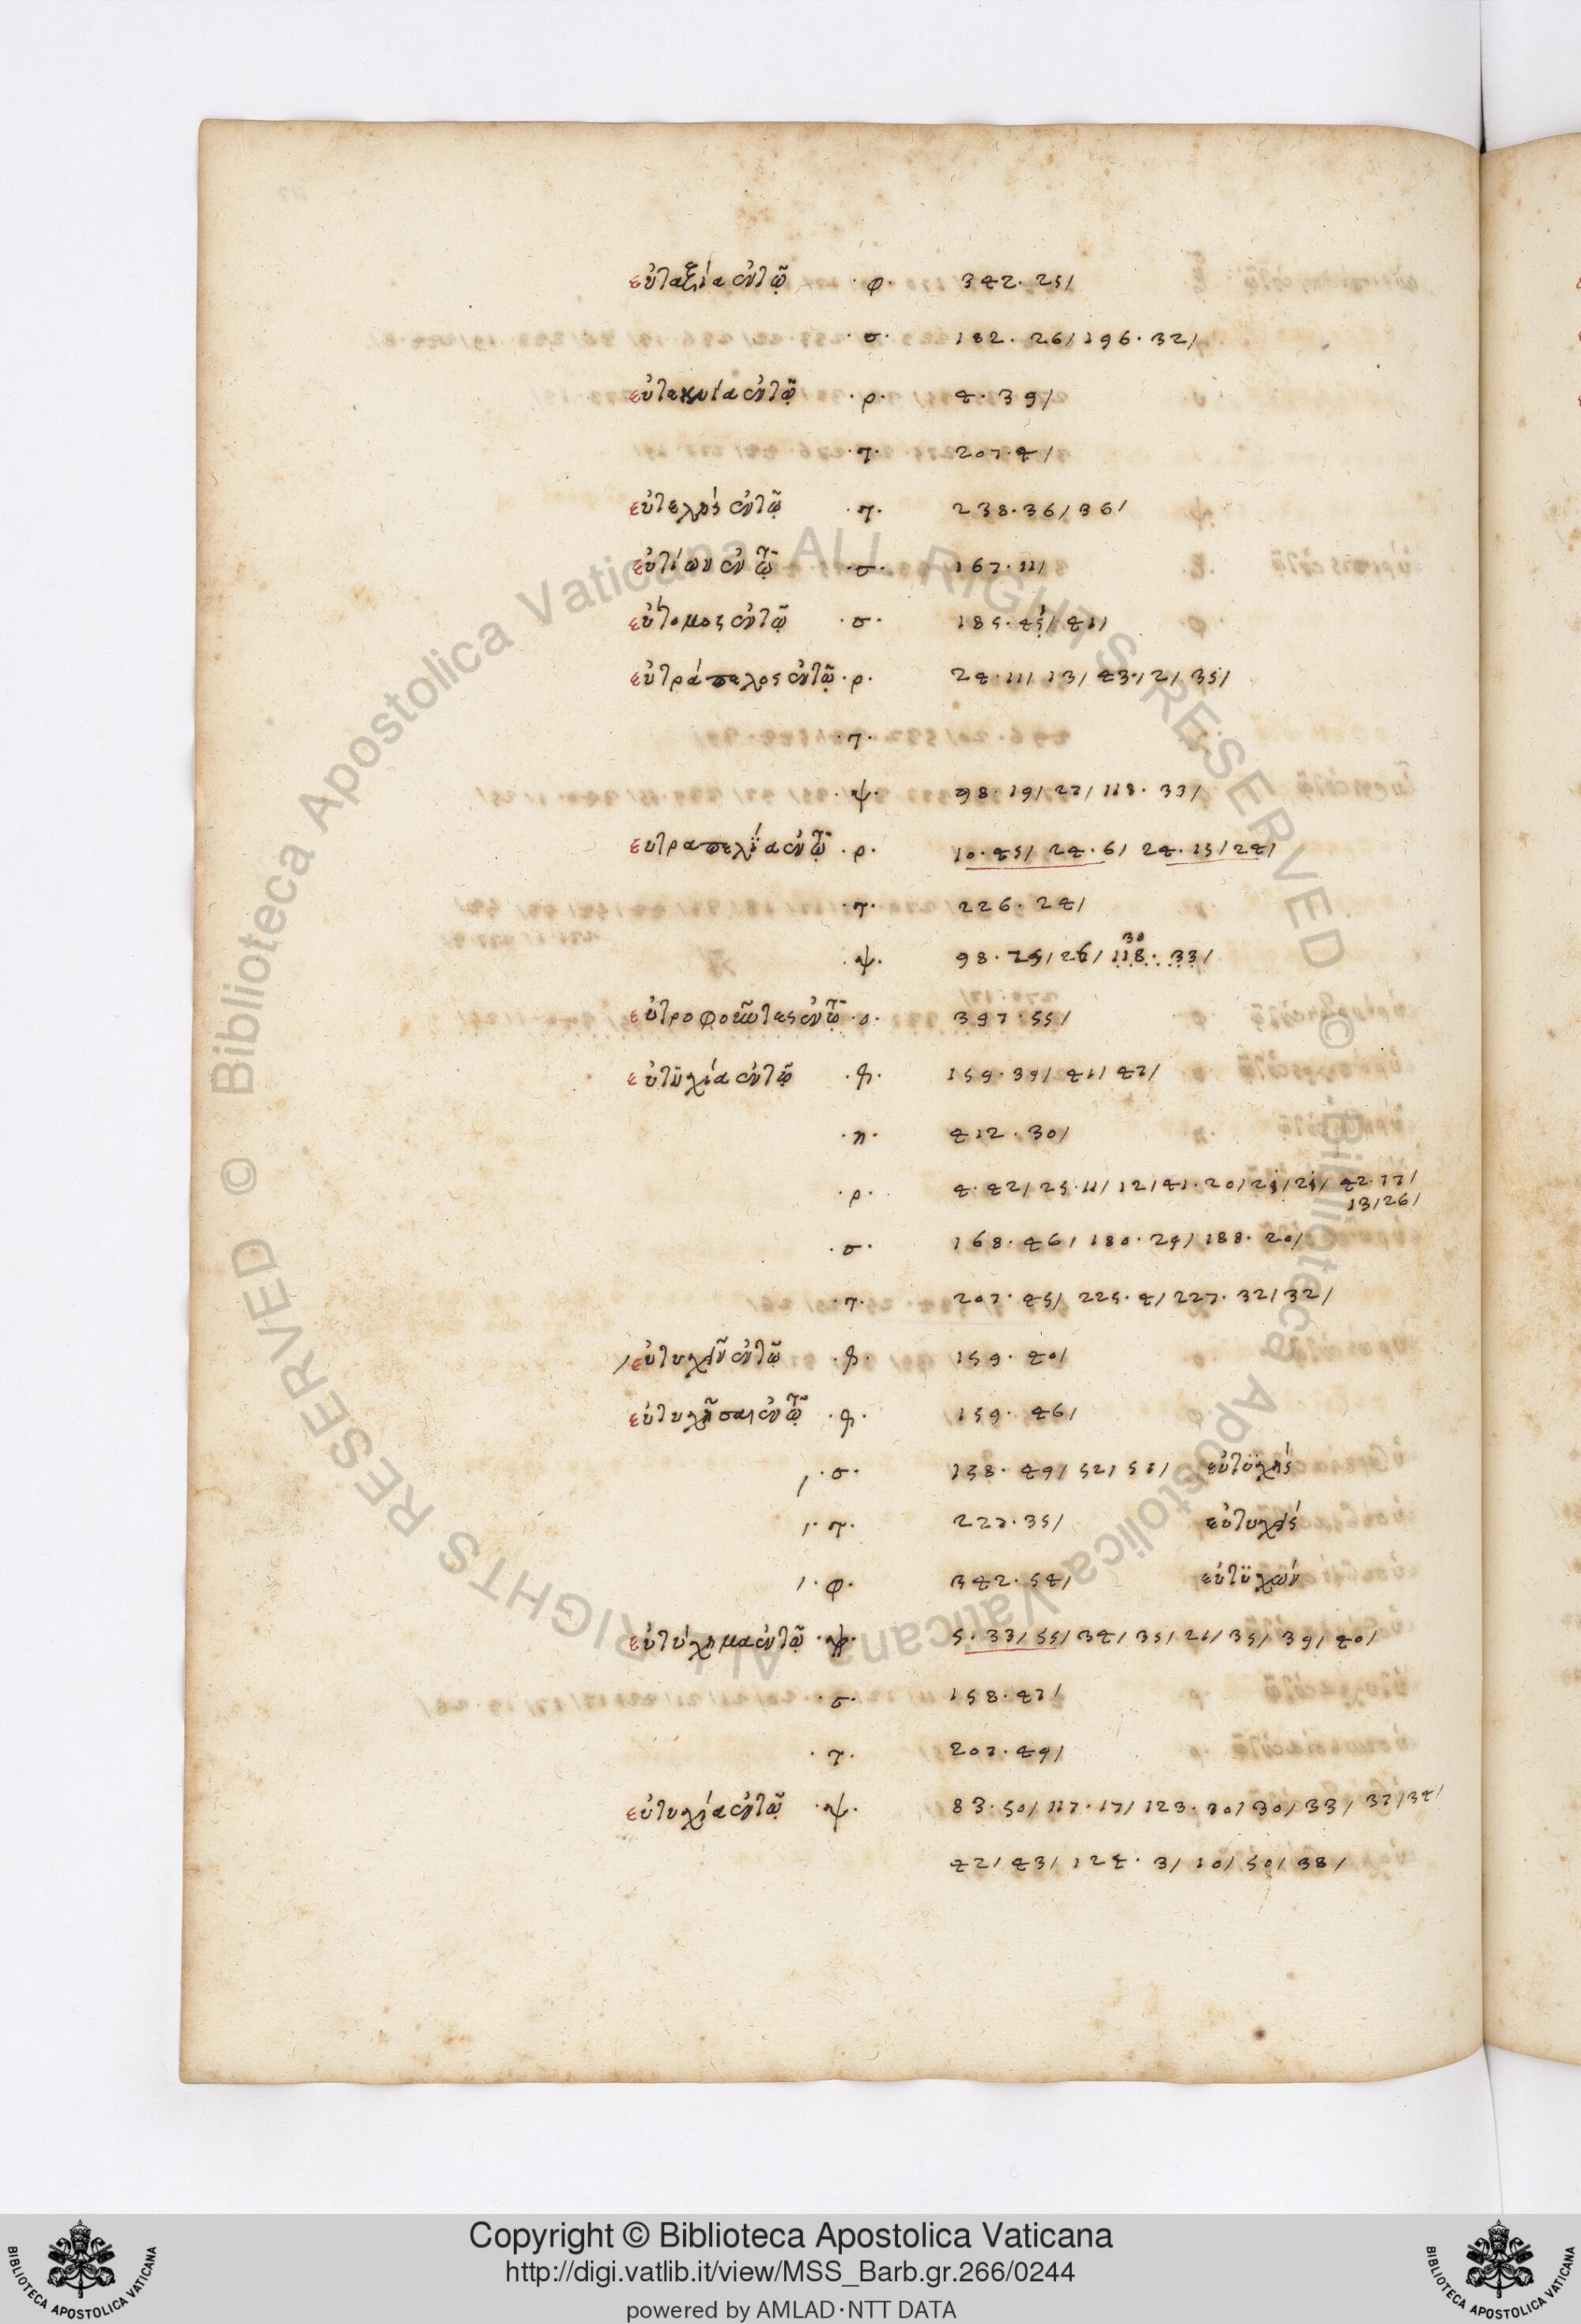 εὐταξία ἐν τῷ ·φ· 342. 25/
·σ· 182. 26/ 196. 32/
εὐτεκνία ἐν τῷ ·ρ· 4. 39/
·τ· 207. 4/
εὐτελής ἐν τῷ ·τ· 238. 36/ 36/
εὐτίων ἐν τῷ ·σ· 167. 11/
εὔτομος ἐν τῷ ·σ· 185. 45/ 41/
εὐτράπελος ἐν τῷ ·ρ· 24. 11/ 13/ 43. 2/ 35/
·τ·
·ψ· 98. 19/ 27/ 118. 33/
εὐτραπελία ἐν τῷ ·ρ· 10. 45/ 24. 6/ 24. 15/ 24/
·τ· 226. 24/
38
·ψ· 98. 25/ 26/ 118. 33/
·ο· 397. 55/
εὐτυχία ἐν τῷ 159. 39/ 41/ 47/
·π· 412. 30/
·ρ· 4. 42/ 25. 11/ 12/ 41. 20/ 21/ 21/ 42. 17/
13/ 26/
·σ· 168. 46/ 180. 29/ 188. 20/
·τ· 207. 45/ 225. 4/ 227. 32/ 32/
/εὐτυχεῖν ἐν τῷ 159. 40/
εὐτυχῆσαι ἐν τῷ 159. 46/
/·σ· 158. 49/ 52/ 51/ εὐτϋχής
/·τ· 227. 35/ εὐτυχής
/·φ· 342. 54/ εὐτϋχών
εὐτύχημα ἐν τῷ 5. 33/ 55/ 34/ 35/ 21/ 35/ 39/ 40/
·σ· 158. 47/
·τ· 207. 49/
εὐτυχία ἐν τῷ ·ψ· 83. 50/ 117. 17/ 123. 30/ 30/ 33/ 37/ 34/
42/ 43/ 124. 3/ 10/ 50/ 38/
© Biblioteca Apostolica Vaticana ALL RIGHTS RESERVED © Biblioteca Apostolica Vaticana ALL RIGHTS RESERVED
Copyright © Biblioteca Apostolica Vaticana
http://digi.vatlib.it/view/MSS_Barb.gr.266/0244
powered by AMLAD·NTT DATA
BIBLIOTECA APOSTOLICA VATICANA
BIBLIOTECA APOSTOLICA VATICANA